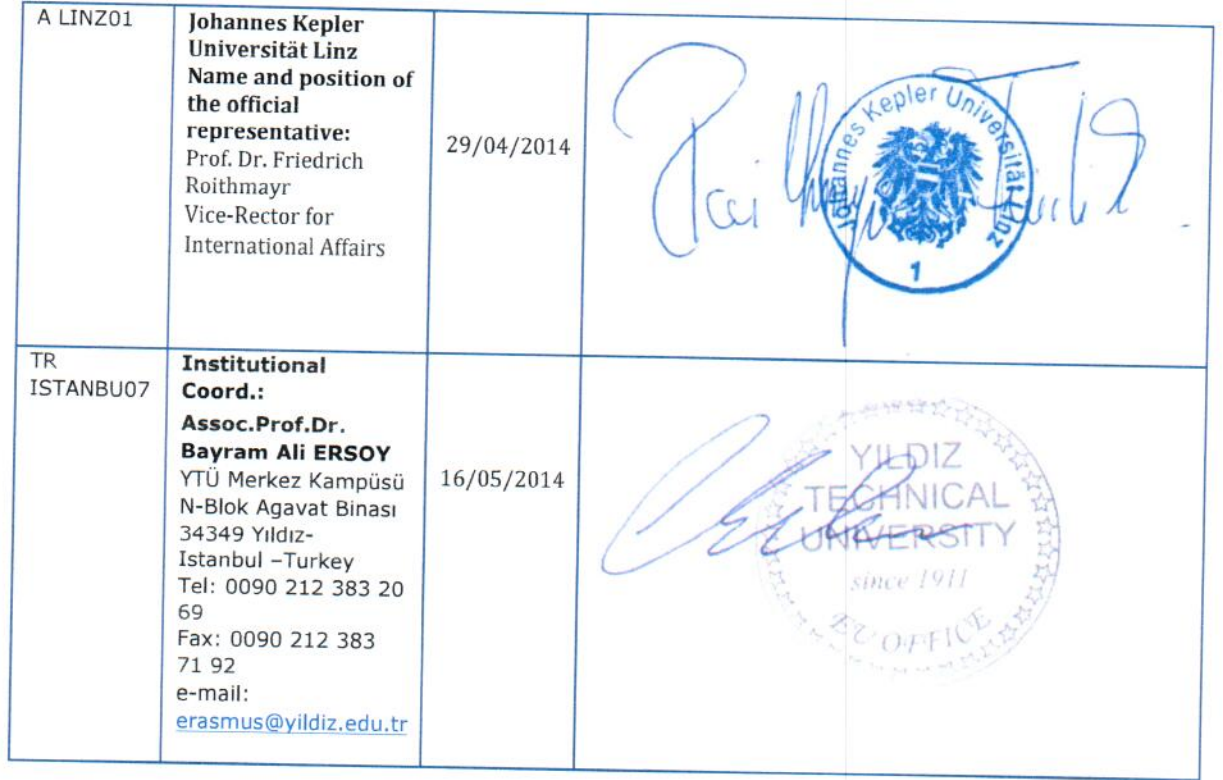 A LINZ01
Johannes Kepler
Universität Linz
Name and position of
the official
representative:
Prof. Dr. Friedrich
Roithmayr
Vice-Rector for
International Affairs
29/04/2014
Johannes Kepler Universität Linz
1
TR
ISTANBU07
Institutional
Coord.:
Assoc.Prof.Dr.
Bayram Ali ERSOY
YTÜ Merkez Kampüsü
N-Blok Agavat Binası
34349 Yıldız-
Istanbul –Turkey
Tel: 0090 212 383 20
69
Fax: 0090 212 383
71 92
e-mail:
erasmus@yildiz.edu.tr
16/05/2014
YILDIZ
TECHNICAL
UNIVERSITY
since 1911
EU OFFICE